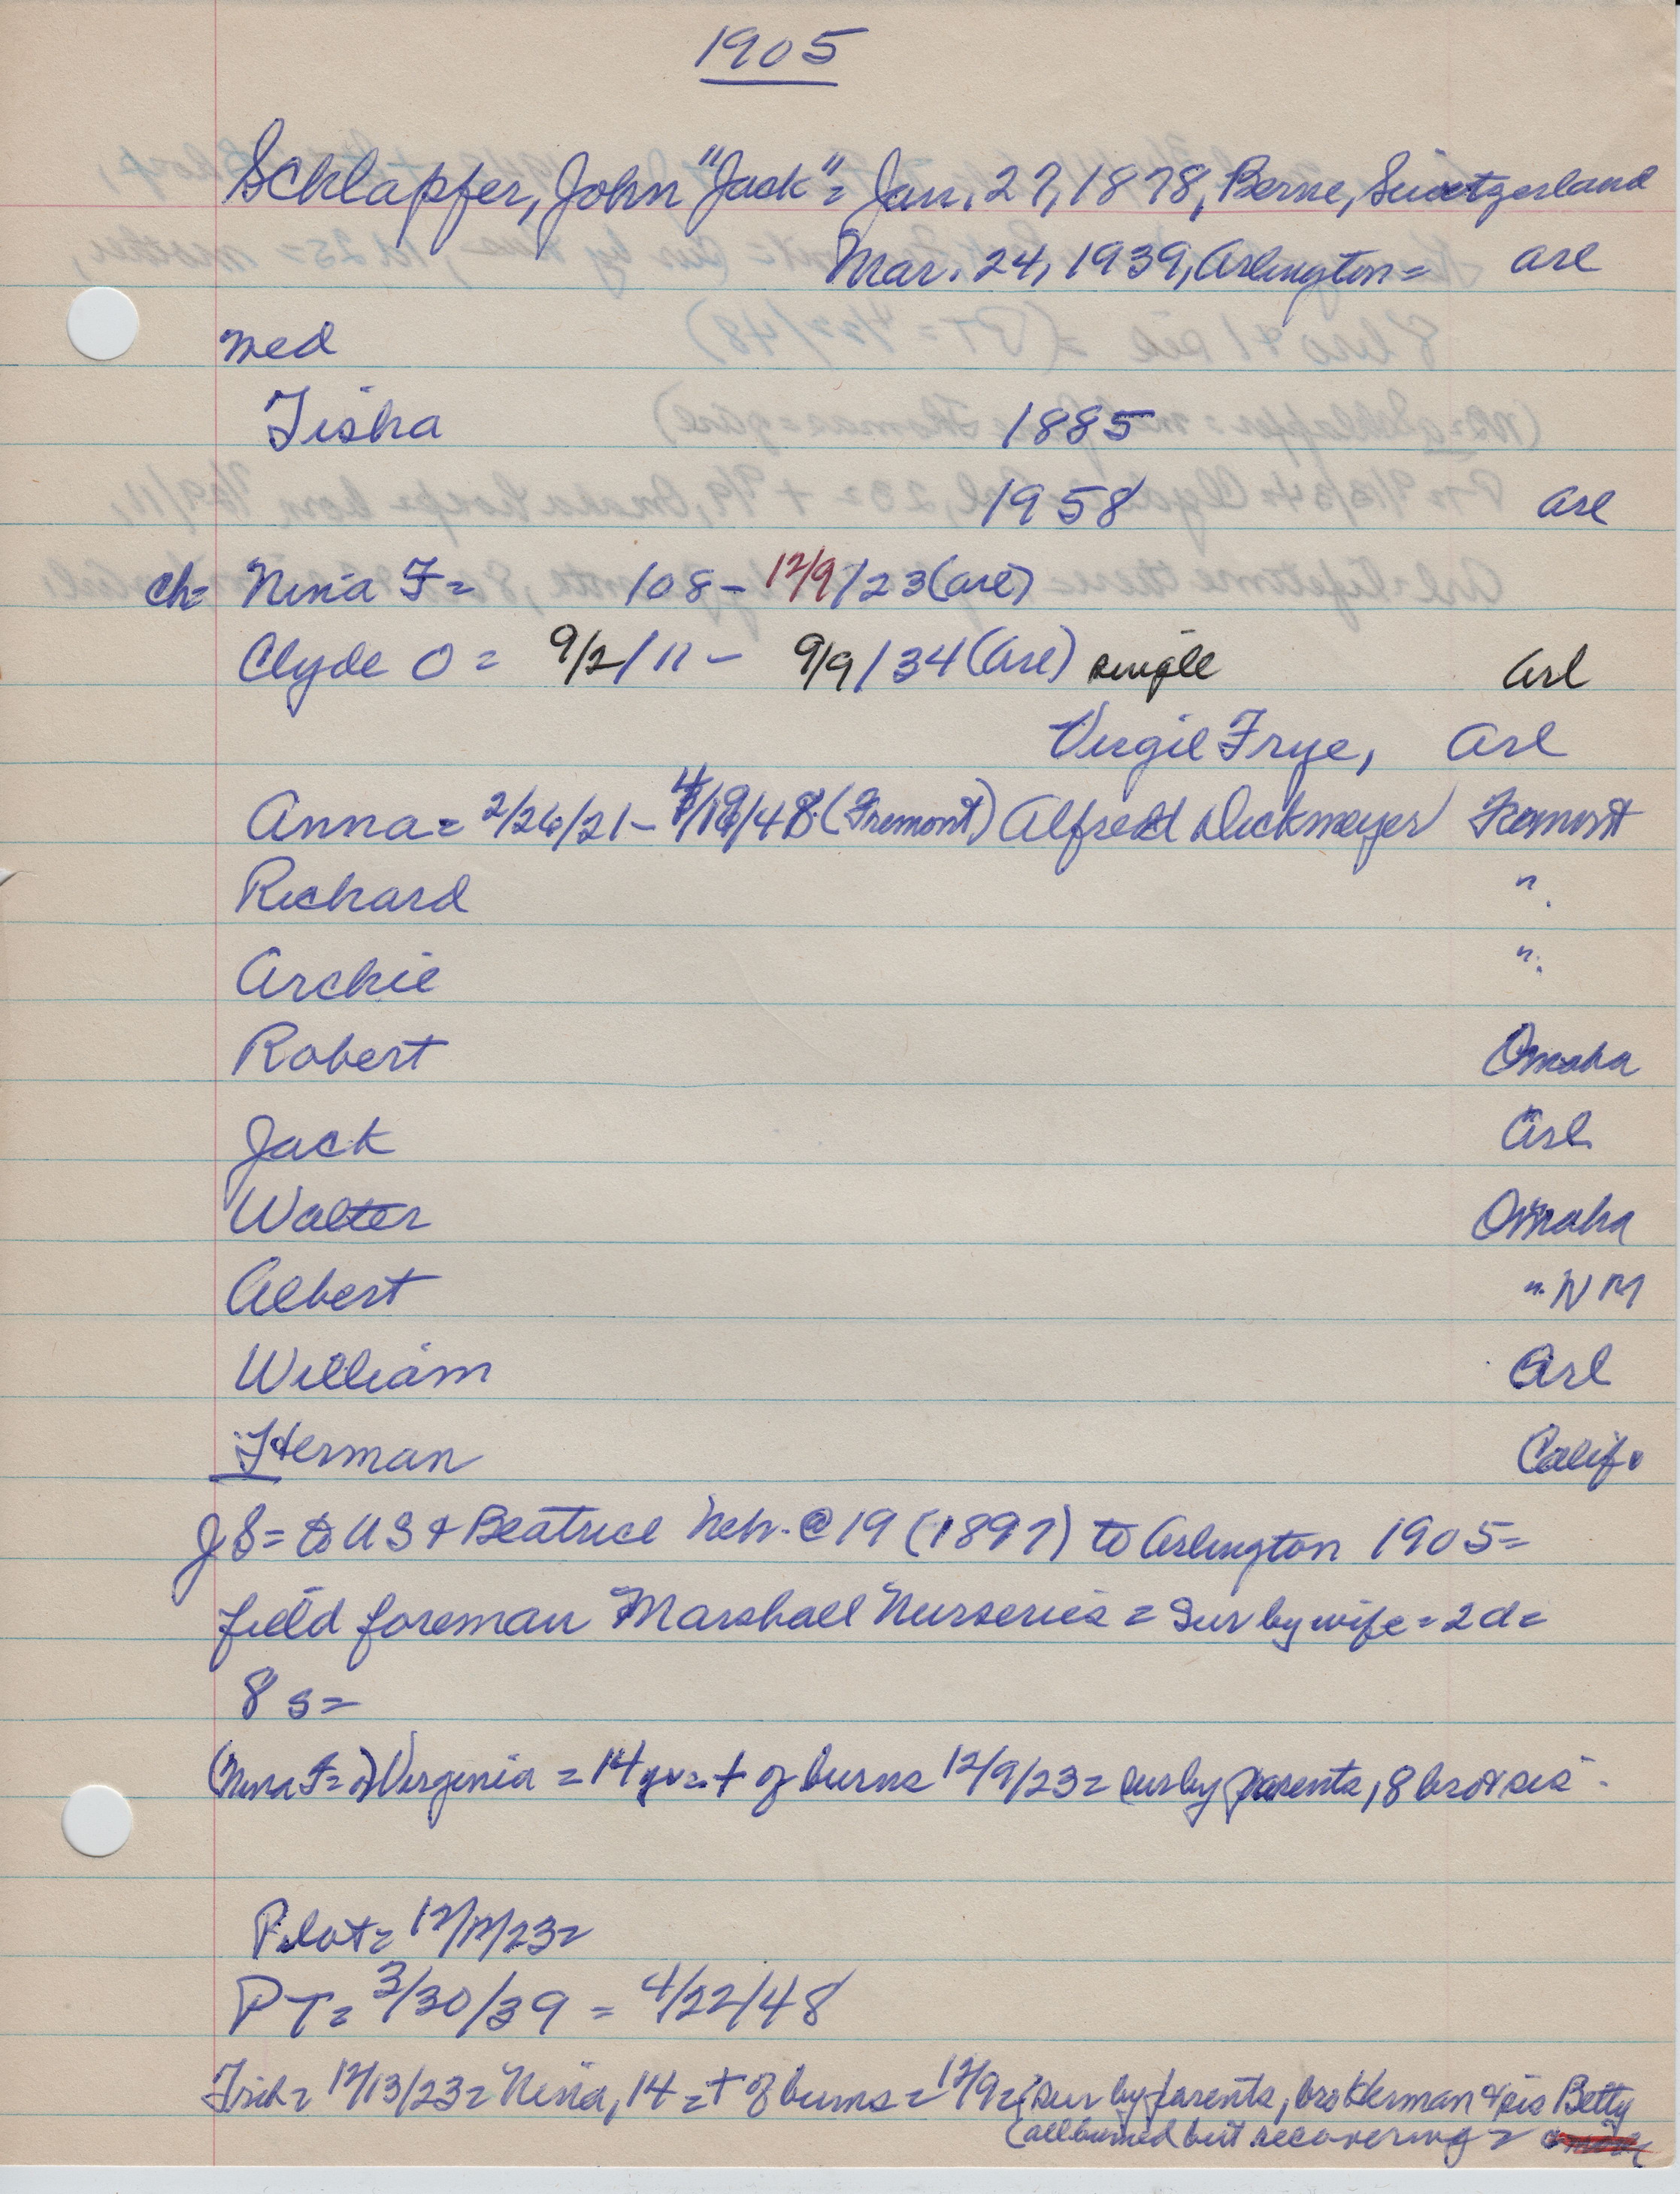 1905
Schlapfer, John "Jack" = Jan. 27, 1878, Berne, Switzerland
Mar. 24, 1939, Arlington = Arl
med
Tisha 1885
1958 Arl
ch= Nina F = /08 - 12/9/23 (Arl)
Clyde O = 9/2/11 - 9/9/34 (Arl) single Arl
Virgil Frye, Arl
Anna = 2/26/21 - 4/19/48 (Fremont) Alfred Dickmeyer Fremont
Richard "
Archie "
Robert Omaha
Jack Arl
Walter Omaha
Albert " NM
William Arl
Herman Calif.
JS = to US & Beatrice Neb. @ 19 (1897) to Arlington 1905 =
field foreman Marshall Nurseries = Sur by wife = 2d =
8 s =
(Nina F = Virginia = 14 yr = + of burns 12/9/23 = sur by parents, 8 bro & sis.
Pilot = 12/12/23 =
PT = 3/30/39 = 4/22/48
Trib = 12/13/23 = Nina, 14 = + of burns = 12/9 = (sur by parents, bro Herman & sis Betty
(all burned but recovering =